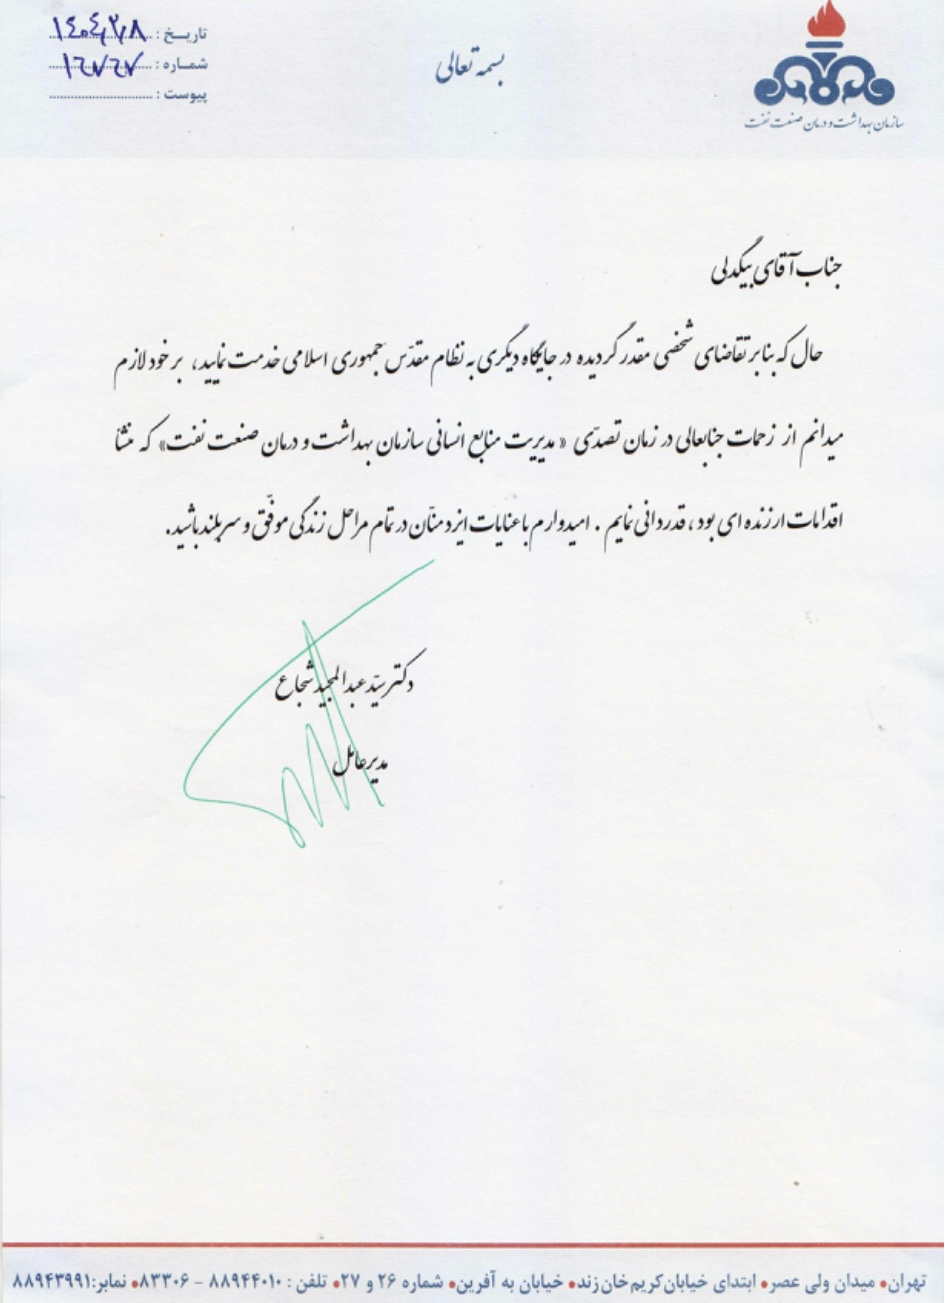 بسمه تعالی
تاریخ :
شماره :
پیوست :
سازمان بهداشت و درمان صنعت نفت
جناب آقای بیگدلی
حال که بنابر تقاضای شخصی مقدر گردیده در جایگاه دیگری به نظام مقدّس جمهوری اسلامی خدمت نمایید، بر خود لازم
میدانم از زحمات جنابعالی در زمان تصدّی « مدیریت منابع انسانی سازمان بهداشت و درمان صنعت نفت» که منشأ
اقدامات ارزنده ای بود ، قدردانی نمایم . امیدوارم با عنایات ایزد منّان در تمام مراحل زندگی موفّق و سربلند باشید.
دکتر سیّد عبدالمجید شجاع
مدیرعامل
تهران• میدان ولی عصر• ابتدای خیابان کریم خان زند• خیابان به آفرین• شماره ۲۶ و ۲۷• تلفن : ۸۸۹۴۴۰۱۰ - ۸۳۳۰۶• نمابر:۸۸۹۴۳۹۹۱